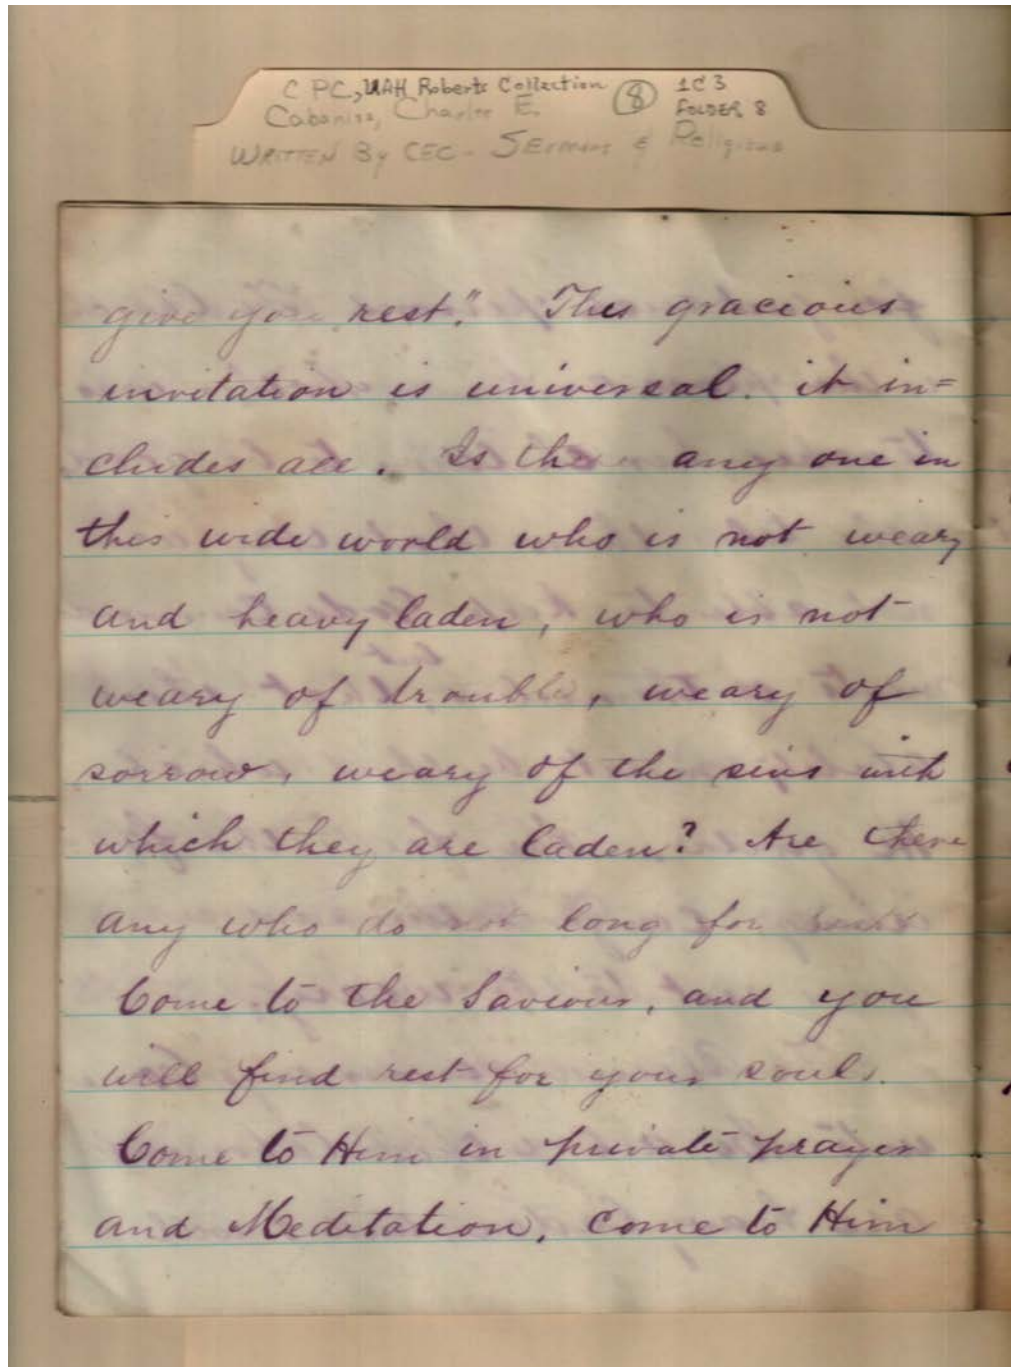 C PC, UAH Roberts Collection 8 1C3
Cabaniss, Charles E. FOLDER 8
WRITTEN By CEC - SERmons & Religious
give you rest." This gracious
invitation is universal. it in=
cludes all. Is the any one in
this wide world who is not weary
and heavy laden, who is not
weary of trouble, weary of
sorrow, weary of the sins with
which they are laden? Are there
any who do not long for
Come to the Saviour, and you
will find rest for your souls.
Come to Him in private prayer
and Meditation, come to Him